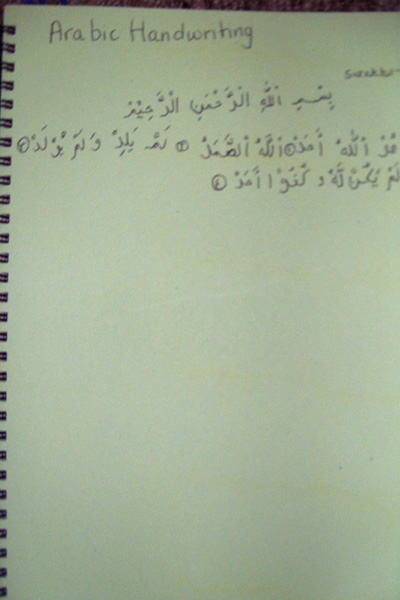 Arabic Handwriting
بِسْمِ اللَّهِ الرَّحْمَنِ الرَّحِيْمِ
هُوَ اللَّهُ أَحَدٌ ① اَللَّهُ الصَّمَدُ ② لَمْ يَلِدْ وَلَمْ يُوْلَدْ ③
لَمْ يَكُنْ لَّهُ كُفُوًا أَحَدٌ ④